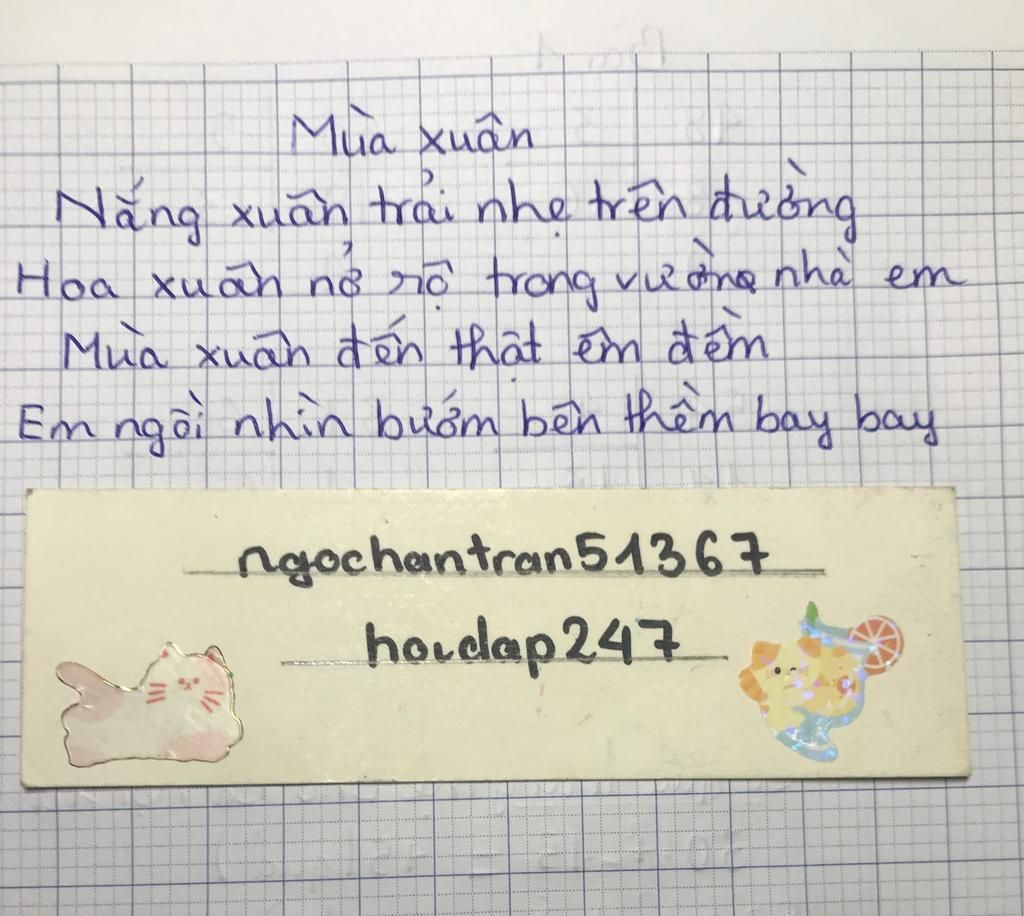 Mùa xuân
Nắng xuân trải nhẹ trên đường
Hoa xuân nở rộ trong vườn nhà em
Mùa xuân đến thật êm đềm
Em ngồi nhìn bướm bên thềm bay bay
ngochantran51367
hoidap247